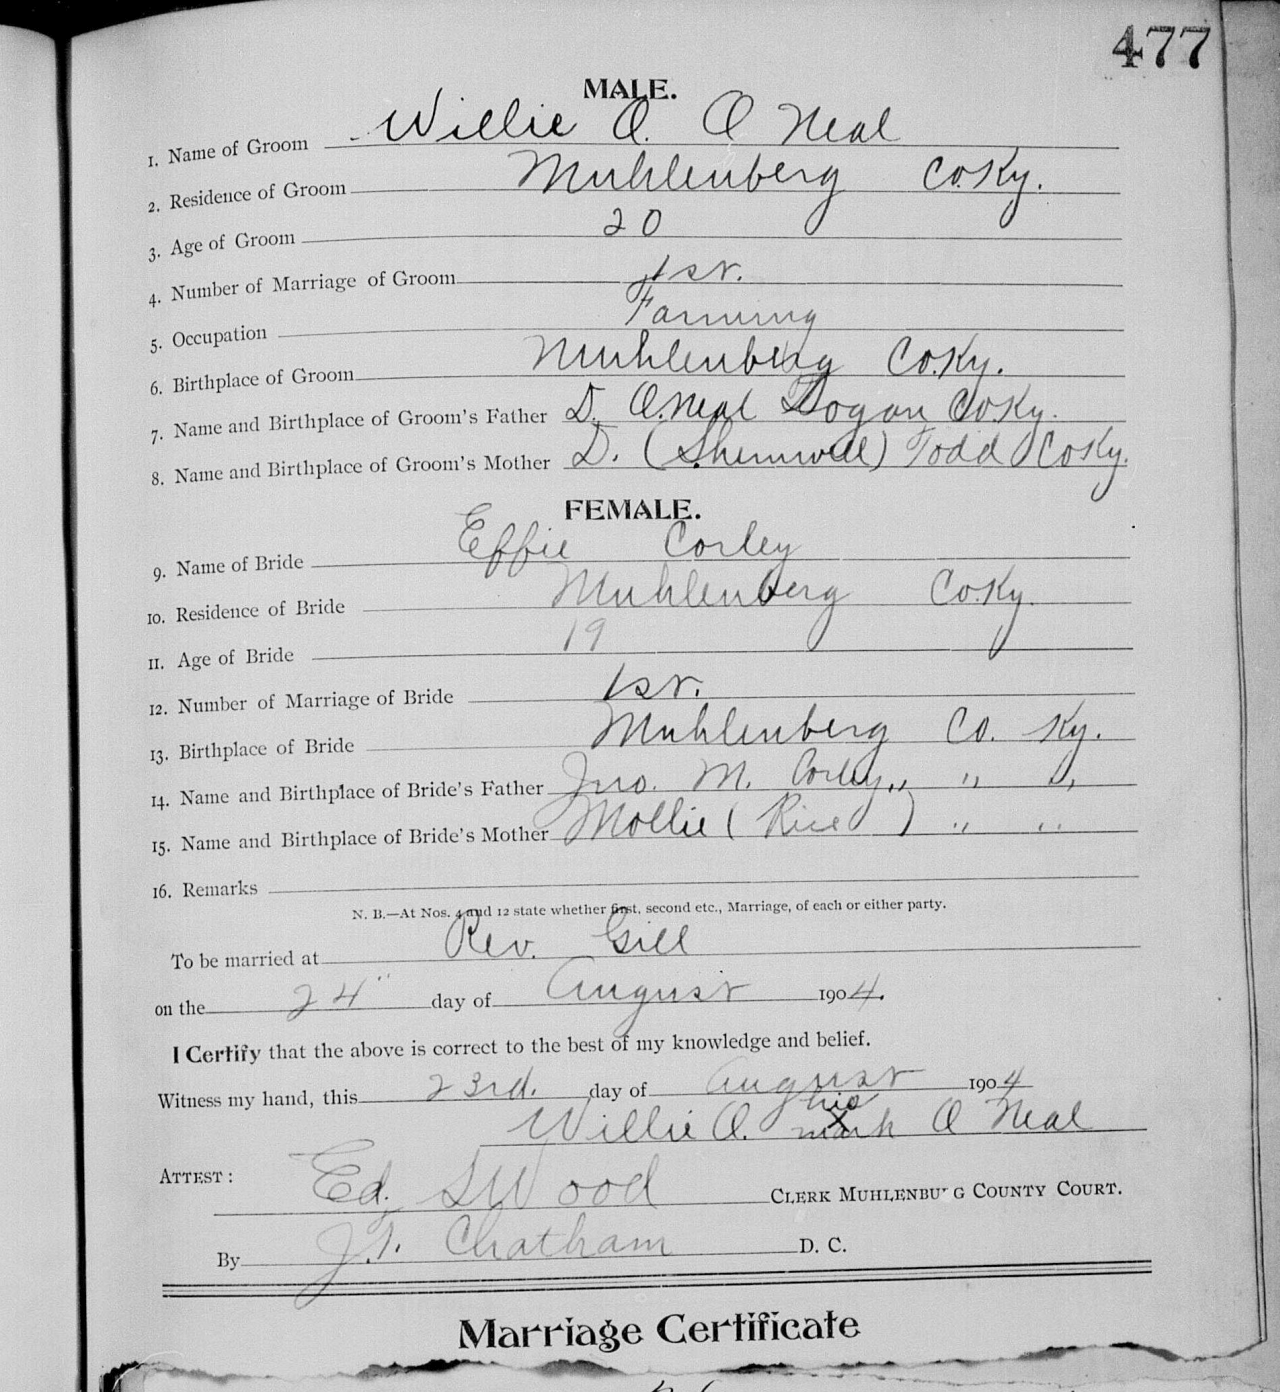 477
MALE.
1. Name of Groom Willie O. O Neal
2. Residence of Groom Muhlenberg Co. Ky.
3. Age of Groom 20
4. Number of Marriage of Groom 1st.
5. Occupation Farming
6. Birthplace of Groom Muhlenberg Co. Ky.
7. Name and Birthplace of Groom's Father D. O.Neal Logan Co Ky.
8. Name and Birthplace of Groom's Mother D. (Shemwell) Todd Co Ky.
FEMALE.
9. Name of Bride Effie Corley
10. Residence of Bride Muhlenberg Co. Ky.
11. Age of Bride 19
12. Number of Marriage of Bride 1st.
13. Birthplace of Bride Muhlenberg Co. Ky.
14. Name and Birthplace of Bride's Father Jno. M. Corley „ „ „
15. Name and Birthplace of Bride's Mother Mollie (Rice) „ „
16. Remarks
N. B.—At Nos. 4 and 12 state whether first, second etc., Marriage, of each or either party.
To be married at Rev. Gill
on the 24" day of August 1904.
I Certify that the above is correct to the best of my knowledge and belief.
Witness my hand, this 23rd. day of August 1904
his
Willie O. X O Neal
mark
ATTEST: Ed. S Wood CLERK MUHLENBURG COUNTY COURT.
By J.T. Chatham D. C.
Marriage Certificate